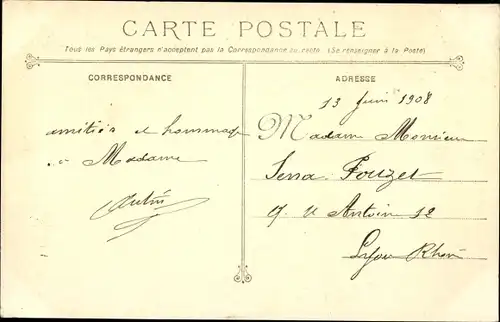 CARTE POSTALE
Tous les Pays étrangers n'acceptent pas la Correspondance au recto (Se renseigner à la Poste)
CORRESPONDANCE
amitiés et hommage
à Madame
ADRESSE
13 Juin 1908
Madame Monsieur
Serra Fouzet
Antoine 12
Lyon Rhône